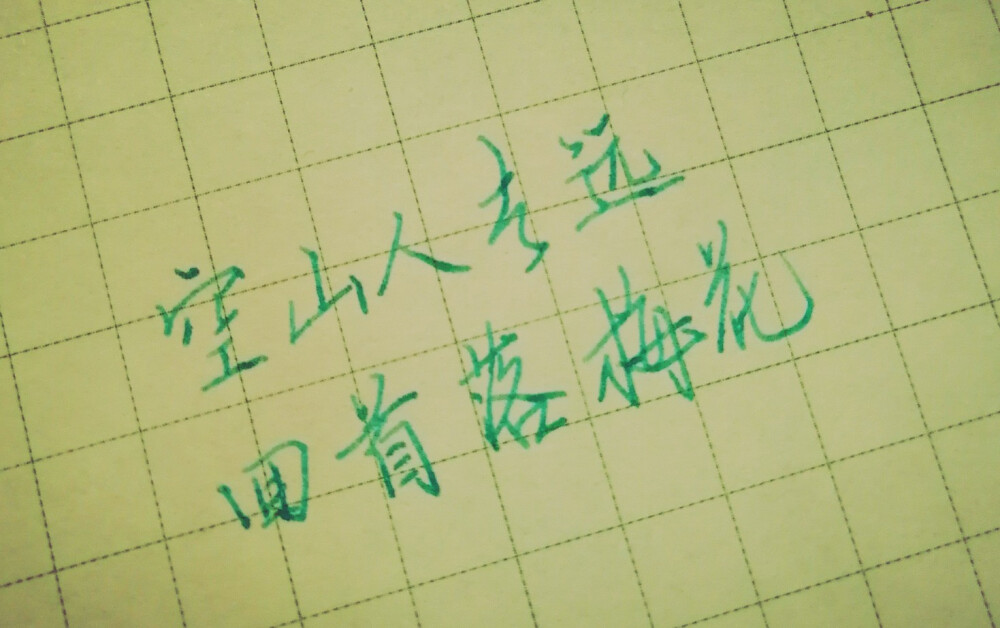 空山人去远
回首落梅花